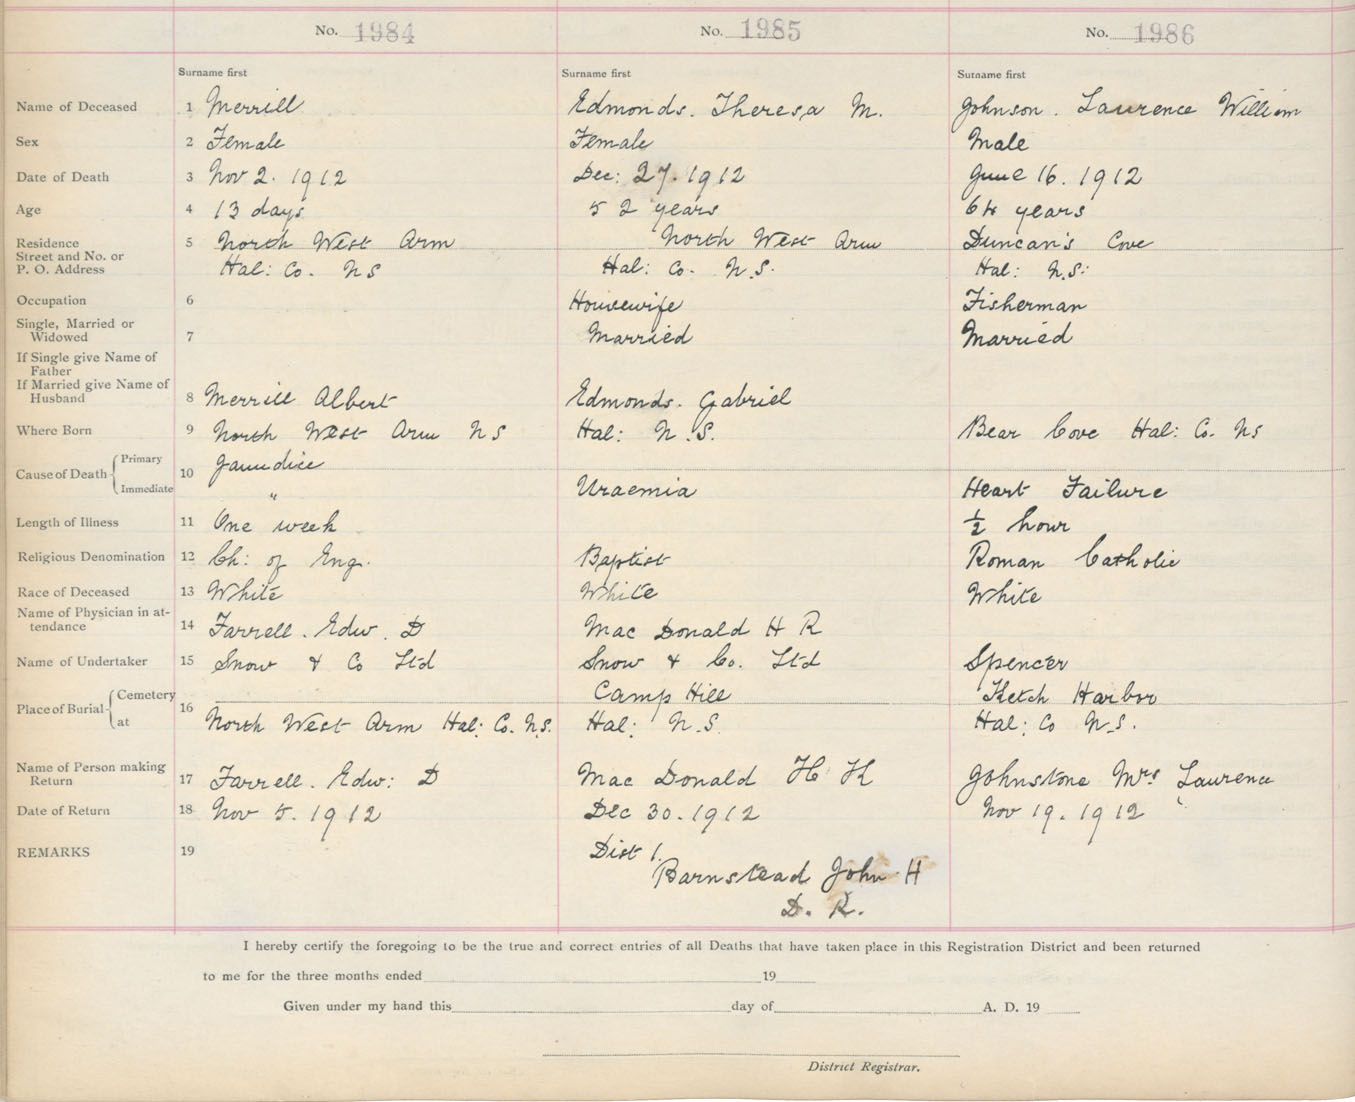 No. 1984 No. 1985 No. 1986
Surname first Surname first Surname first
Name of Deceased 1 Merrill Edmonds. Theresa M. Johnson. Laurence William
Sex 2 Female Female Male
Date of Death 3 Nov 2. 1912 Dec: 27. 1912 June 16. 1912
Age 4 13 days 52 years 64 years
Residence 5 North West Arm North West Arm Duncan's Cove
Street and No. or
P. O. Address Hal: Co. NS Hal: Co. N.S. Hal: N.S:
Occupation 6 Housewife Fisherman
Single, Married or
Widowed 7 Married Married
If Single give Name of
Father
If Married give Name of
Husband 8 Merrill Albert Edmonds. Gabriel
Where Born 9 North West Arm NS Hal: N.S. Bear Cove Hal: Co. NS
Cause of Death { Primary 10 Jaundice
Immediate " Uraemia Heart Failure
Length of Illness 11 One week ½ hour
Religious Denomination 12 Ch: of Eng. Baptist Roman Catholic
Race of Deceased 13 White White White
Name of Physician in at-
tendance 14 Farrell. Edw. D Mac Donald H R
Name of Undertaker 15 Snow & Co Ltd Snow & Co. Ltd Spencer
Place of Burial { Cemetery 16 Camp Hill Ketch Harbor
at North West Arm Hal: Co. N.S. Hal: N.S. Hal: Co N.S.
Name of Person making
Return 17 Farrell. Edw: D Mac Donald H K Johnstone Mrs Laurence
Date of Return 18 Nov 5. 1912 Dec 30. 1912 Nov 19. 1912
REMARKS 19 Dist 1.
Barnstead John H
D. R.
I hereby certify the foregoing to be the true and correct entries of all Deaths that have taken place in this Registration District and been returned
to me for the three months ended 19
Given under my hand this day of A. D. 19
District Registrar.